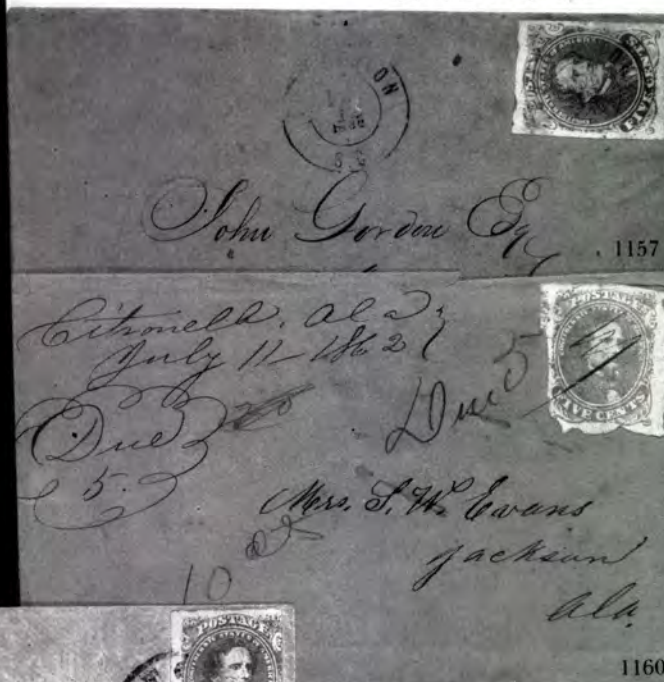 ON
John Gordon Esq
1157
Citronella, Ala
July 11 - 1862
Due
5.
Due 5
POSTAGE
FIVE CENTS
Mrs. S. W. Evans
Jackson
Ala.
10
1160
POSTAGE